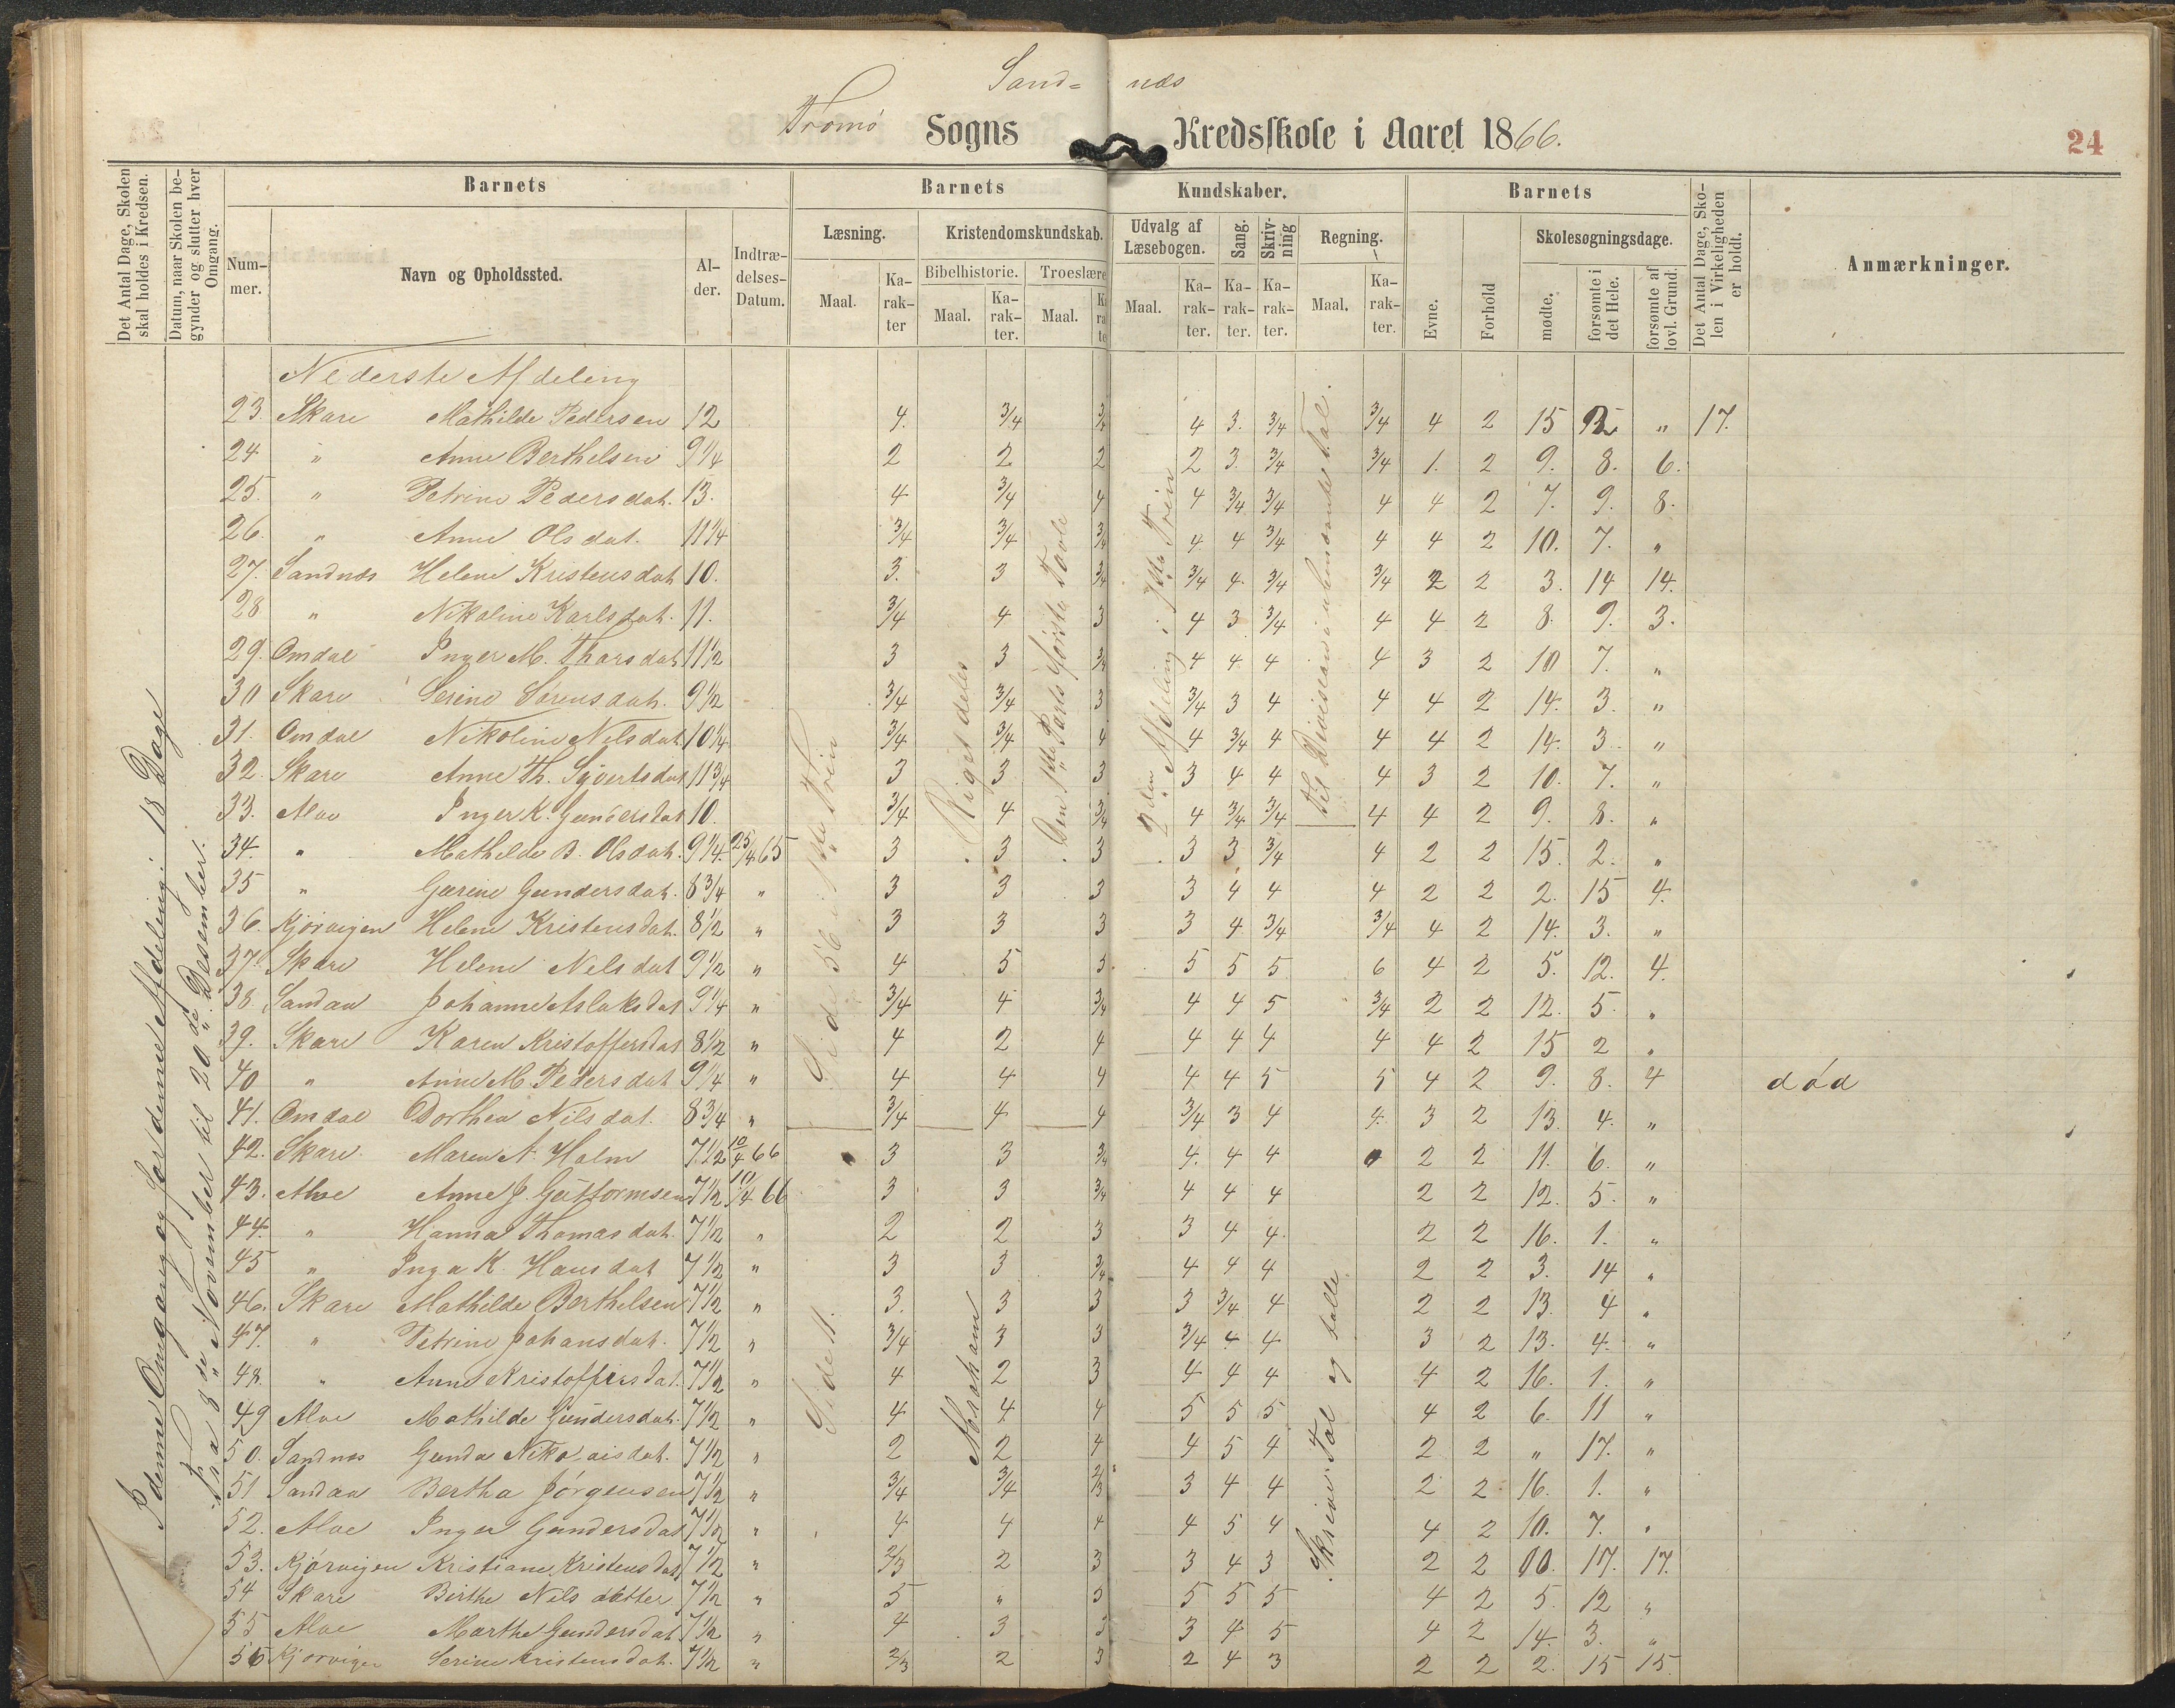 Sand= næs
Tromø Sogns Kredsskole i Aaret 1866.
24
Det Antal Dage, Skolen skal holdes i Kredsen.
Datum, naar Skolen begynder og slutter hver Omgang.
Barnets
Nummer.
Navn og Opholdssted.
Alder.
Indtrædelses-Datum.
Barnets
Læsning.
Maal.
Karakter
Kristendomskundskab.
Bibelhistorie.
Maal.
Karakter.
Troeslære
Maal.
Kundskaber.
Udvalg af Læsebogen.
Maal.
Karakter.
Sang.
Karakter.
Skrivning
Karakter.
Regning.
Maal.
Karakter.
Barnets
Evne.
Forhold
Skolesøgningsdage.
mødte.
forsømte i det Hele.
forsømte af lovl. Grund.
Det Antal Dage, Skolen i Virkeligheden er holdt.
Anmærkninger.
I denne Omgang og for denne Afdeling: 18 Dage
Fra 8de November til 20de Desember.
Side 56 i 1ste Trin
Side 11.
Riget deles
Abraham
Den 1ste Parts første Tavle
2den Afdeling i 1ste Trin
til Division i ubenævnte Tal.
Skrive Tal og talle
Nederste Afdeling
23 Skare Mathilde Pedersen 12 4. 3/4 3/4 4 3. 3/4 3/4 4 2 15 2 „ 17.
24 „ Anne Berthelsen 9 1/4 2 2 2 2 3. 3/4 3/4 1. 2 9. 8. 6.
25. „ Petrine Pedersdat. 13. 4 3/4 4 4 3/4 3/4 4 4 2 7. 9. 8.
26. „ Anne Olsdat. 11 1/4 3/4 3/4 3/4 4 4 3/4 4 4 2 10. 7. „
27. Sandnæs Helene Kristensdat 10. 3. 3 3/4 3/4 4 3/4 3/4 2 2 3. 14 14.
28 „ Nikoline Karlsdat. 11. 3/4 4 3 4 3 3/4 4 4 2 8. 9. 3.
29. Omdal Inger M. Thorsdat 11 1/2 3 3 3/4 4 4 4 4 3 2 10 7. „
30 Skare Serine Sørensdat. 9 1/2 3/4 3/4 3 3/4 3 4 4 4 2 14. 3. „
31. Omdal Nikoline Nilsdat 10 1/4 3/4 3/4 4 4 3/4 4 4 4 2 14. 3. „
32. Skare Anne Th. Syvertsdat 11 3/4 3 3 3 3 4 4 4 3 2 10. 7. „
33. Alve Inger K. Gundersdat 10. 3/4 4 3/4 4 3/4 3/4 4 4 2 9. 8. „
34. „ Mathilde B. Olsdat. 9 1/4. 25/4 65 3 3 3 3 3 3/4 4 2 2 15. 2. „
35 „ Gurine Gundersdat. 8 3/4 „ 3 3 3 3 4 4 4 2 2 2. 15 4.
36. Kjørvigen Helene Kristensdat. 8 1/2 „ 3 3 3 3 4 3/4 3/4 4 2 14. 3. „
37. Skare Helene Nelsdat 9 1/2 „ 4 5 5. 5 5 5 6 4 2 5. 12. 4.
38. Sandaa Johanne Aslaksdat 9 1/4 „ 3/4 4 3/4 4 4 5 3/4 2 2 12. 5. „
39. Skare Karen Kristoffersdat 8 1/2 „ 4 2 4 4 4 4 4 4 2 15 2 „
40 „ Anne M. Pedersdat 9 1/4 „ 4 4 4 4 4 5 5 4 2 9. 8. 4 død
41. Omdal Dorthea Nilsdat. 8 3/4 „ 3/4 4 4 3/4 3 4 4. 3 2 13. 4. „
42. Skare Maren A. Holm 7 1/2 10/4 66 3 3 3/4 4. 4 4 2 2 11. 6. „
43. Alve Anne J. Guttormsen 7 1/2 10/4 66 3 3 3/4 4 4 4 2 2 12. 5. „
44. „ Hanna Thomasdat. 7 1/2 „ 2 2 3 3 4 4. 2 2 16. 1. „
45 „ Inga K. Hansdat 7 1/2 „ 3 3 3/4 4 4 4 2 2 3. 14 „
46. Skare Mathilde Berthelsen 7 1/2 „ 3. 3 3 3 3/4 4 2 2 13. 4 „
47. „ Petrine Johansdat. 7 1/2 „ 3/4 3 3 3/4 4 4 3 2 13. 4. „
48. „ Anne Kristoffersdat. 7 1/2 „ 4 2 3 4 4 4 4 2 16. 1. „
49 Alve Mathilde Gundersdat. 7 1/2 „ 4 4 4 5 5 5 4 2 6. 11 „
50. Sandnæs Gunda Nikolaisdat. 7 1/2 „ 2 2 4 4 5 4 2 2 „ 17. „
51 Sandaa Bertha Jørgensen 7 1/2 „ 3/4 3/4 2/3 3 4 4 2 2 16. 1. „
52. Alve Inger Gundersdat 7 1/2 „ 4 4 4 4 5 4 4 2 10. 7. „
53. Kjørvigen Kristiane Kristensdat 7 1/2 „ 2/3 2 3 3 4 3 2 2 00. 17. 17.
54 Skare Birthe Nilsdatter 7 1/2 „ 5 „ 5 5 5 5 4 2 5. 12 „
55 Alve Marthe Gundersdat 7 1/2 „ 4 3 3 3 4 5 4 2 14. 3. „
56 Kjørvigen Serine Kristensdat. 7 1/2 „ 2/3 2 3 2 4 3 2 2 2. 15 15.